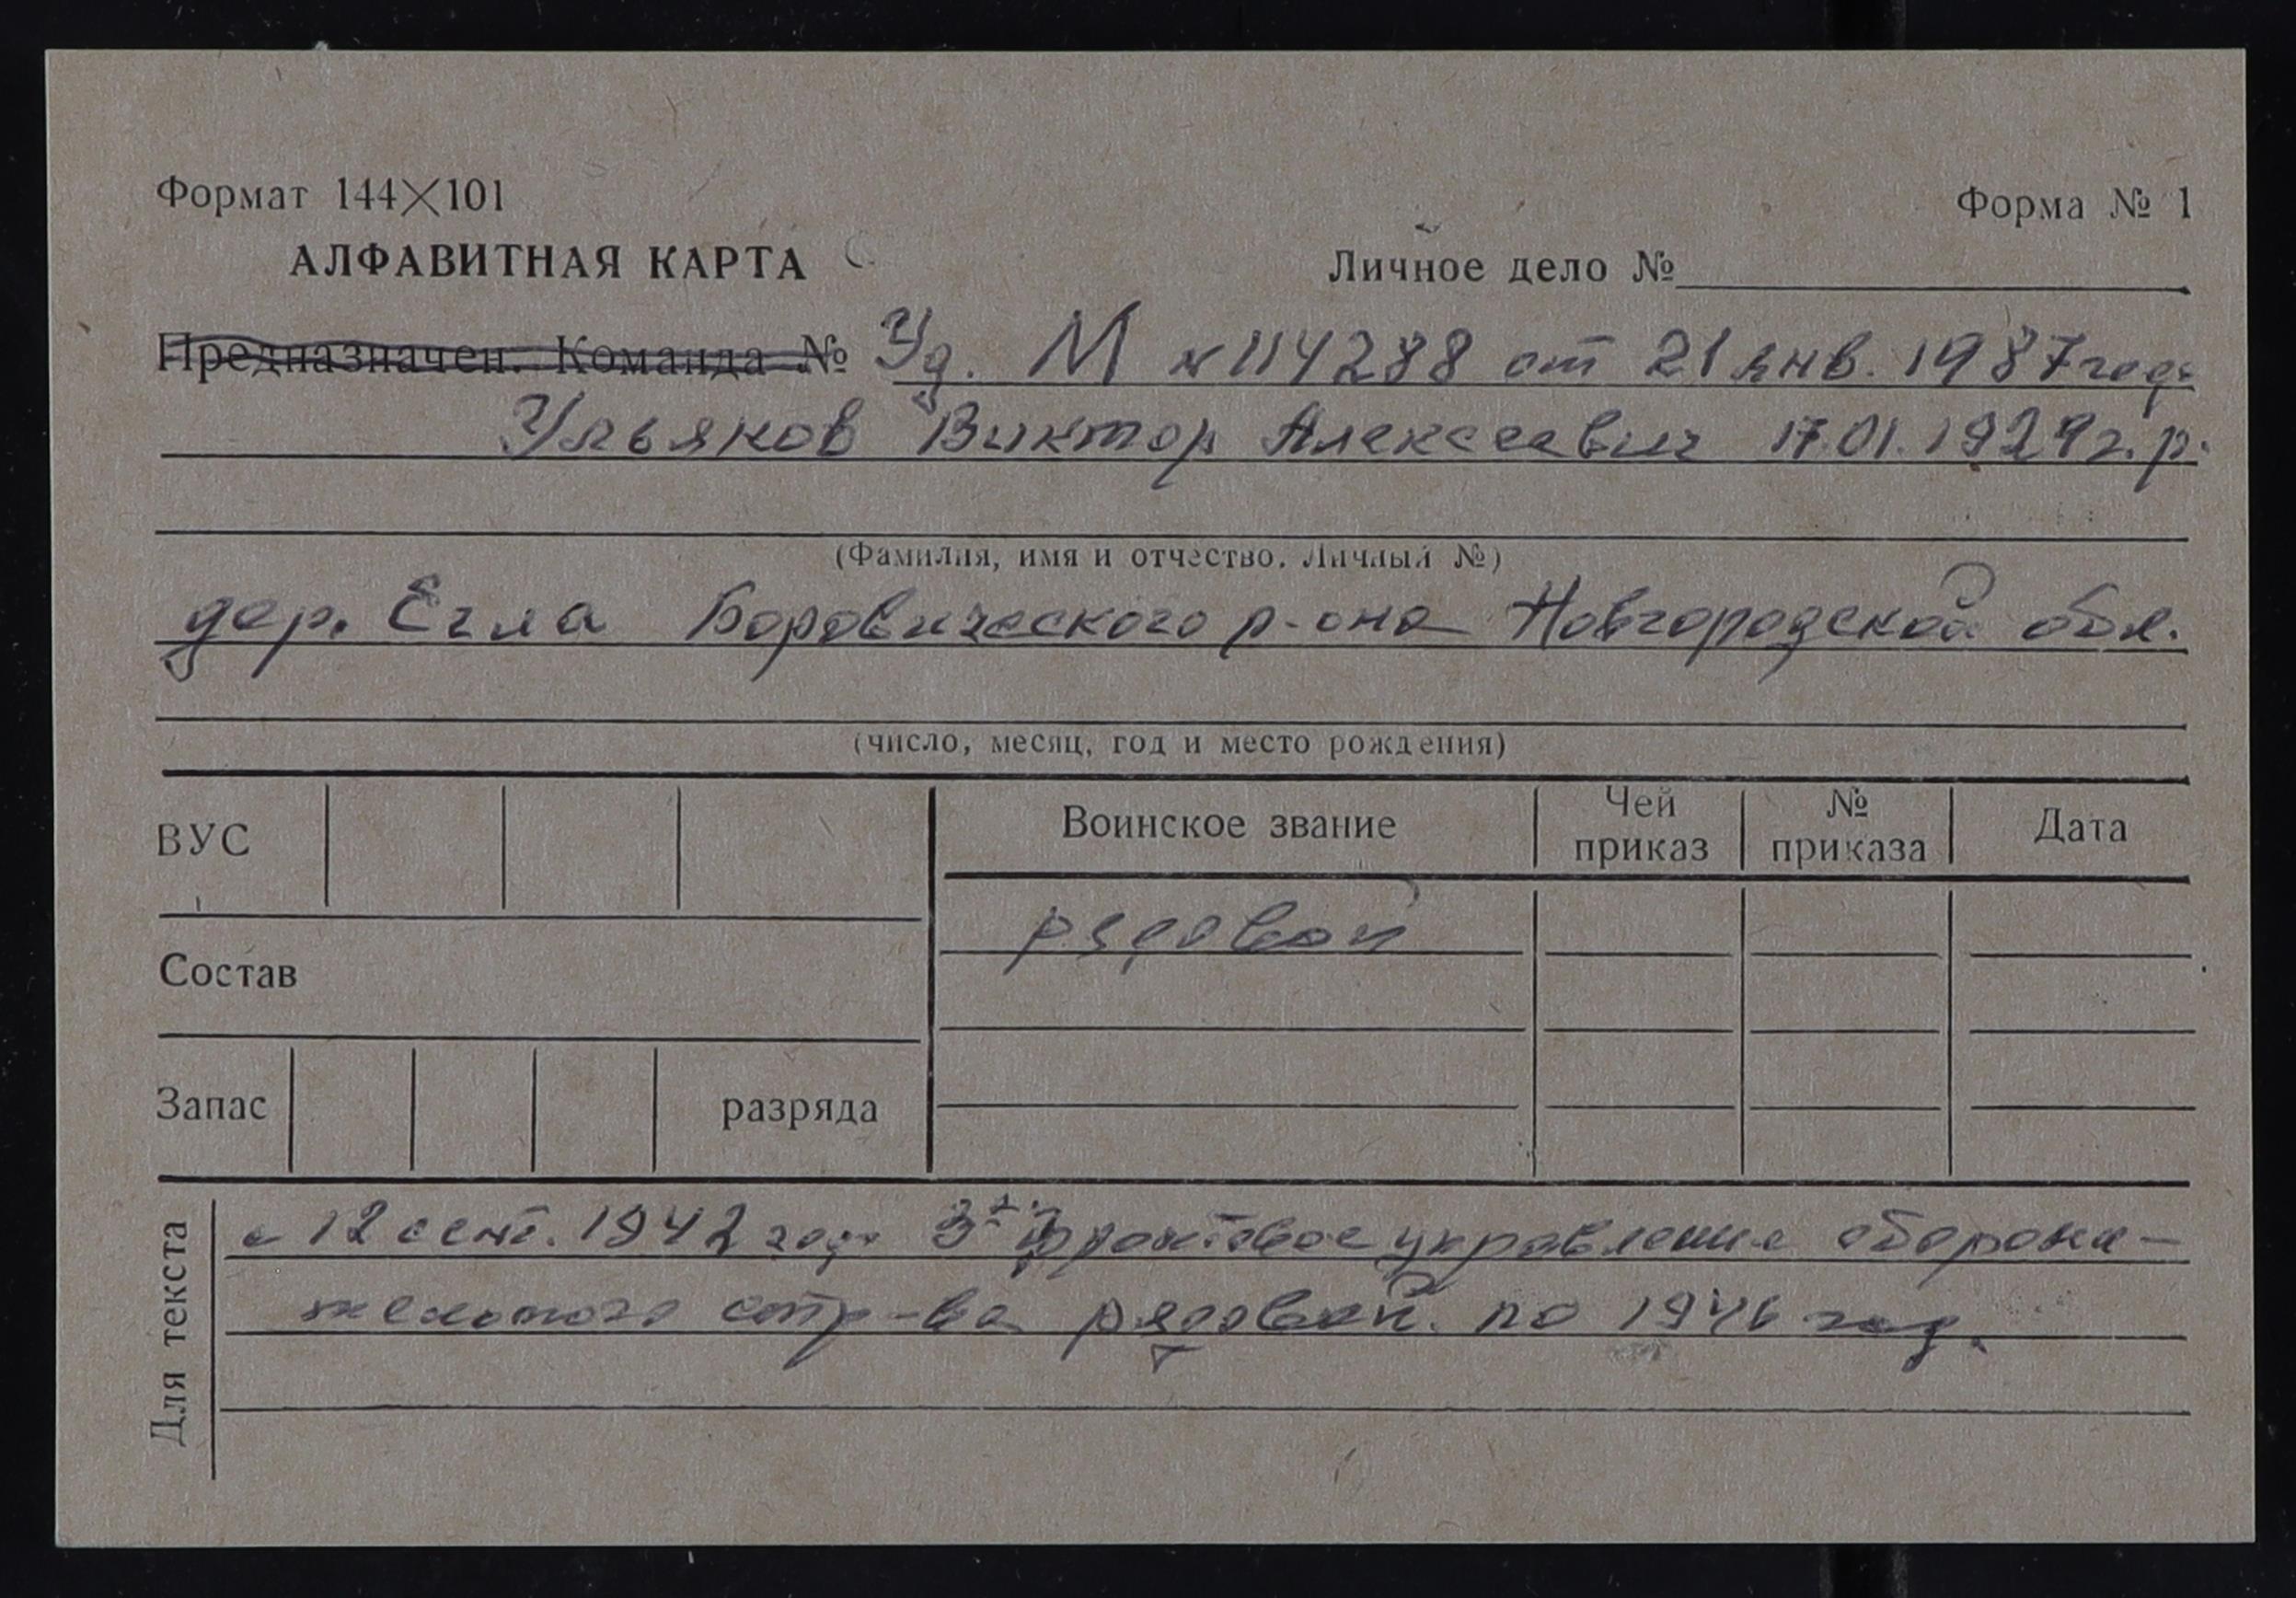 Формат 144×101
Форма № 1
АЛФАВИТНАЯ КАРТА
Личное дело №
Предназначен. Команда № Уд. М №114288 от 21 янв. 1987 года
Ульянов Виктор Алексеевич 17.01.1929г.р.
(Фамилия, имя и отчество. Личный №)
дер. Егла Боровического р-она Новгородской обл.
(число, месяц, год и место рождения)
ВУС
Воинское звание
Чей приказ
№ приказа
Дата
рядовой
Состав
Запас
разряда
Для текста
с 12 сент. 1942 года 3-е фронтовое управление оборони-
тельного стр-ва рядовой. по 1946 год.